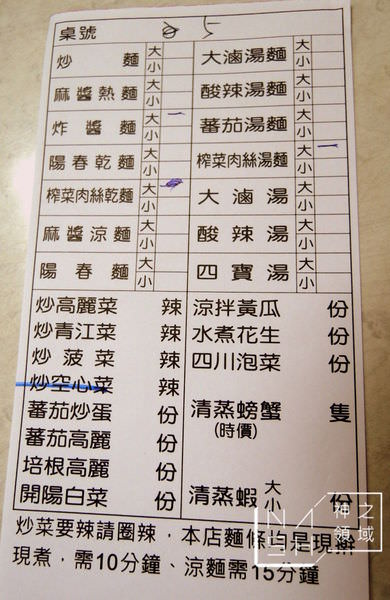 桌號 百5
炒麵 大 小 大滷湯麵 大 小
麻醬熱麵 大 小 酸辣湯麵 大 小
炸醬麵 大 小 一 蕃茄湯麵 大 小
陽春乾麵 大 小 榨菜肉絲湯麵 大 一 小
榨菜肉絲乾麵 大 小 大滷湯 大 小
麻醬涼麵 大 小 酸辣湯 大 小
陽春麵 大 小 四寶湯 大 小
炒高麗菜 辣 涼拌黃瓜 份
炒青江菜 辣 水煮花生 份
炒菠菜 辣 四川泡菜 份
炒空心菜 辣
蕃茄炒蛋 份 清蒸螃蟹 隻
蕃茄高麗 份 (時價)
培根高麗 份
開陽白菜 份 清蒸蝦 大 小 份
炒菜要辣請圈辣，本店麵條均是現擀
現煮，需10分鐘、涼麵需15分鐘
神之
領域